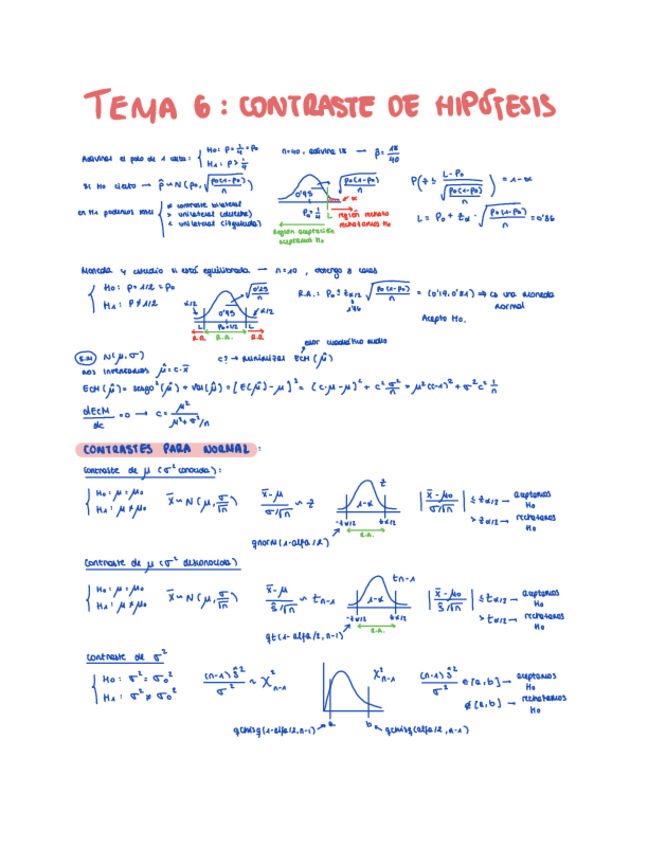 TEMA 6: CONTRASTE DE HIPÓTESIS
Adivinar el palo de 1 carta: { H₀: P = 1/4 = P₀
H₁: P > 1/4
n=40, adivina 18 → p̂ = 18/40
Si H₀ cierto → p̂ ~ N(P₀, √(P₀(1-P₀)/n))
0'95
√(P₀(1-P₀)/n)
α
P₀=1/4
L
región rechazo
rechazamos H₀
región aceptación
aceptamos H₀
P(z ≤ (L-P₀)/√(P₀(1-P₀)/n)) = 1-α
L = P₀ + zα · √(P₀(1-P₀)/n) = 0'36
en H₁ podemos tener { ≠ contraste bilateral
> unilateral (derecha)
< unilateral (izquierda)
Moneda y estudio si está equilibrada → n=10, obtengo 3 caras
{ H₀: P = 1/2 = P₀
H₁: P ≠ 1/2
α/2
0'95
√(0'25/n)
α/2
L P₀=1/2 L
R.R. R.A. R.R.
R.A.: P₀ ± zα/2 √(P₀(1-P₀)/n) = (0'19, 0'81) → es una moneda
1'96
normal
Acepto H₀.
error cuadrático medio
N(μ, σ)
c? → minimizar ECM(μ̂)
nos inventamos μ̂ = c·x̄
ECM(μ̂) = sesgo²(μ̂) + var(μ̂) = [E(μ̂) - μ]² = (c·μ - μ)² + c² σ²/n = μ²(c-1)² + σ² c² 1/n
dECM/dc = 0 → c = μ²/(μ² + σ²/n)
CONTRASTES PARA NORMAL:
contraste de μ (σ² conocida):
{ H₀: μ = μ₀
H₁: μ ≠ μ₀
x̄ ~ N(μ, σ/√n)
(x̄-μ)/(σ/√n) ~ z
z
1-α
-zα/2 zα/2
R.A.
qnorm(1-alfa/2)
|(x̄-μ₀)/(σ/√n)| ≤ zα/2 → aceptamos H₀
> zα/2 → rechazamos H₀
contraste de μ (σ² desconocida)
{ H₀: μ = μ₀
H₁: μ ≠ μ₀
x̄ ~ N(μ, σ/√n)
(x̄-μ)/(ŝ/√n) ~ tn-1
tn-1
1-α
R.A.
qt(1-alfa/2, n-1)
|(x̄-μ₀)/(ŝ/√n)| ≤ tα/2 → aceptamos H₀
> tα/2 → rechazamos H₀
contraste de σ²
{ H₀: σ² = σ₀²
H₁: σ² ≠ σ₀²
(n-1)ŝ²/σ² ~ χ²n-1
χ²n-1
a b
qchisq(1-alfa/2, n-1)
qchisq(alfa/2, n-1)
(n-1)ŝ²/σ² ∈ [a,b] → aceptamos H₀
∉ [a,b] → rechazamos H₀